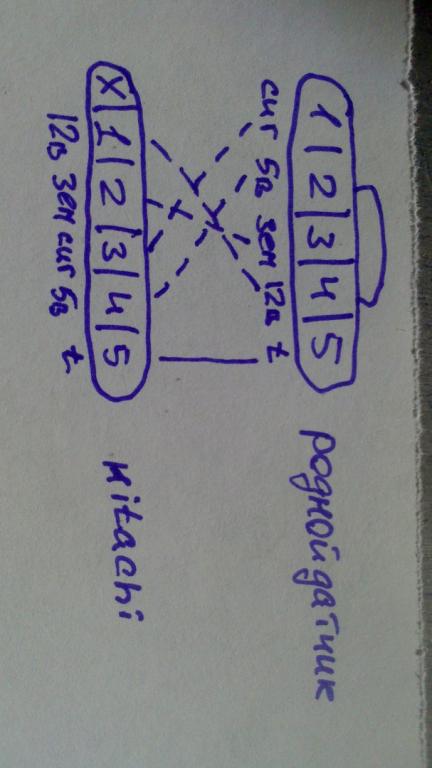 1 2 3 4 5
сиг 5в зем 12в t
родной датчик
X 1 2 3 4 5
12в зем сиг 5в t
Hitachi